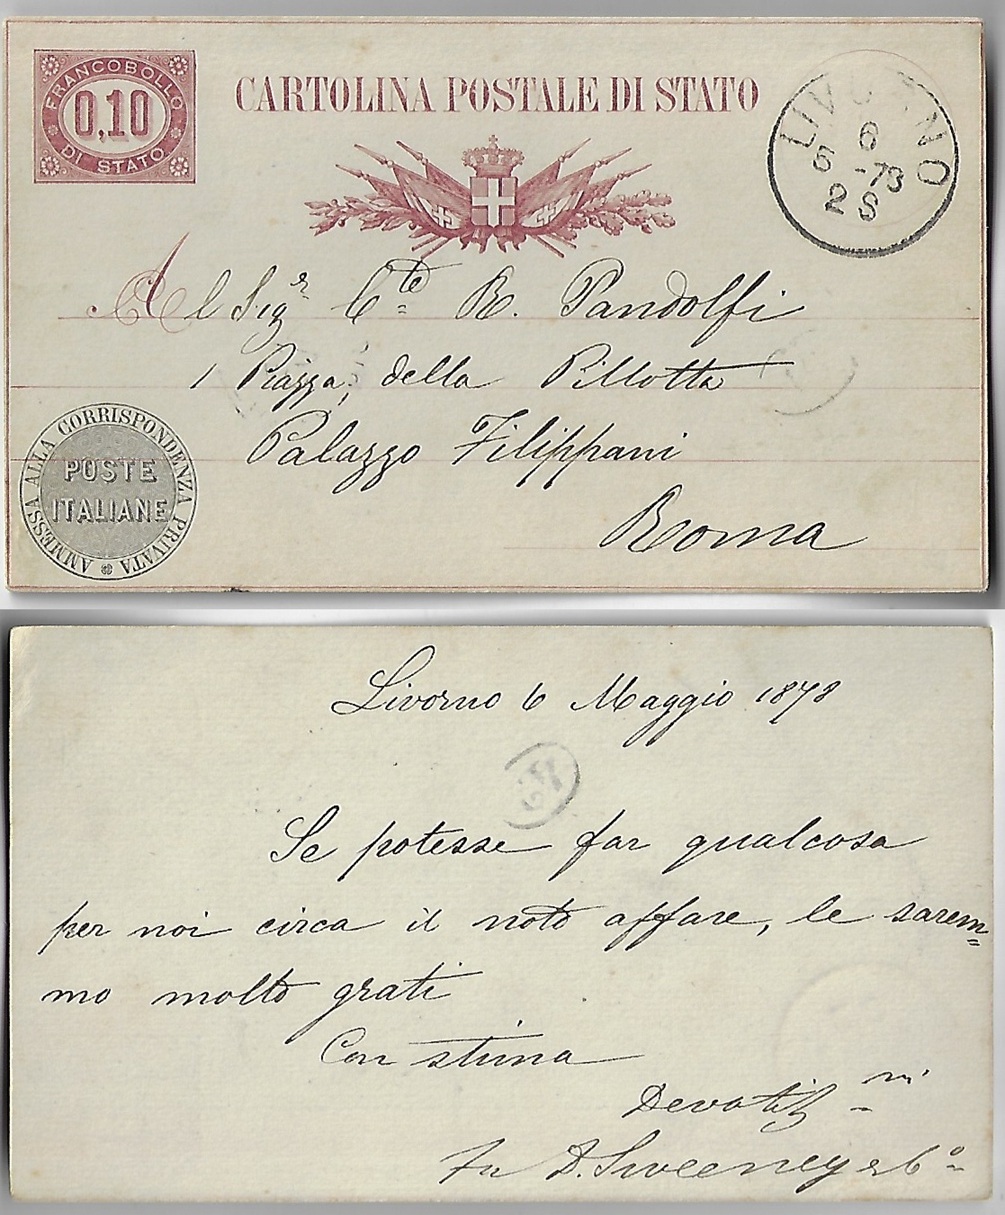 FRANCOBOLLO
0,10
DI STATO
CARTOLINA POSTALE DI STATO
LIVORNO
6
5 -78
2 S
Al Sigr Cte R. Pandolfi
1 Piazza, della Pillotta
Palazzo Filippani
Roma
AMMESSA ALLA CORRISPONDENZA PRIVATA
POSTE
ITALIANE
Livorno 6 Maggio 1878
Se potesse far qualcosa
per noi circa il noto affare, le sarem=
mo molto grati
Con stima
Devotiss mi
D. Sweeney & Co